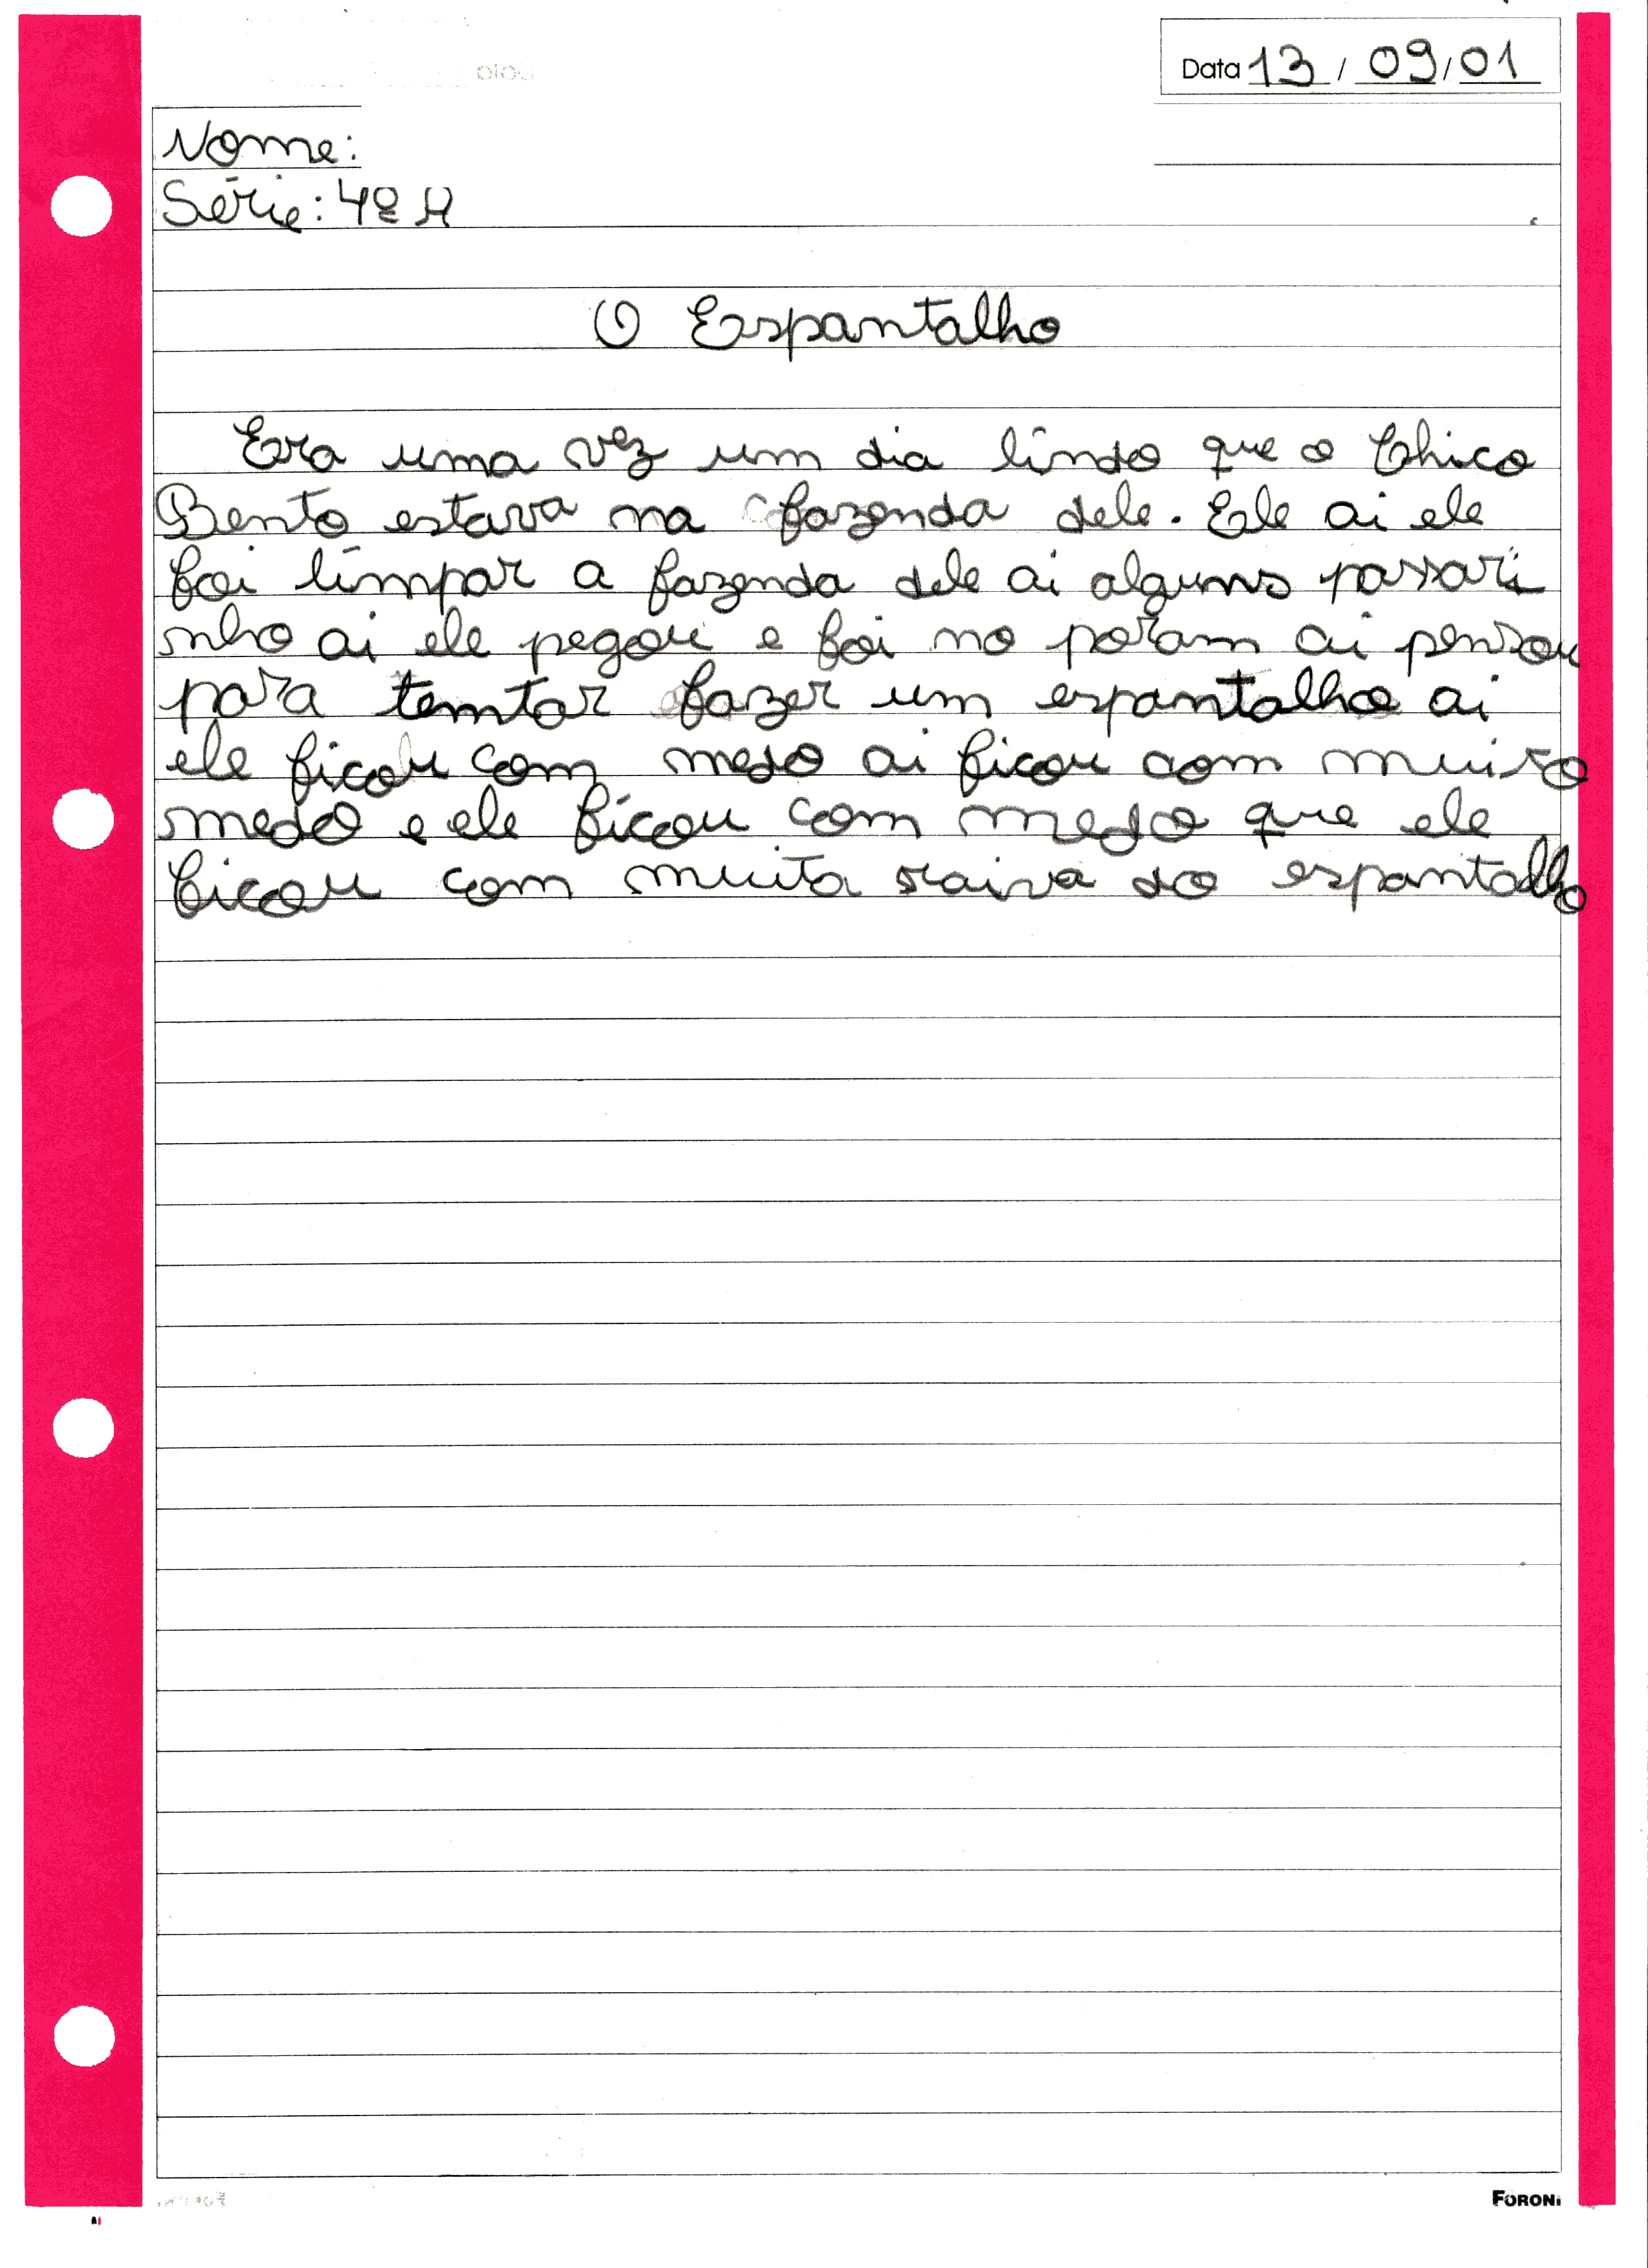 Data 13 / 09 / 01
Nome:
Série: 4ª A
O Espantalho
Era uma vez um dia lindo que o Chico
Bento estava na fazenda dele. Ele ai ele
foi limpar a fazenda dele ai alguns passari
nho ai ele pegou e foi no poram ai pensou
para temtar fazer um espantalho ai
ele ficou com medo ai ficou com muiro
medo e ele ficou com medo que ele
ficou com muita raiva do espantalho
FORONI